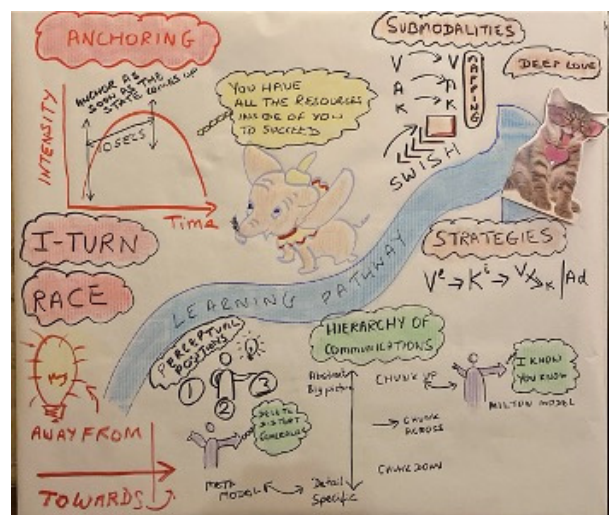 ANCHORING
INTENSITY
ANCHOR AS
SOON AS THE
STATE COMES UP
10 SECS
Time
I-TURN
RACE
AWAY FROM
TOWARDS
YOU HAVE
ALL THE RESOURCES
INSIDE OF YOU
TO SUCCEED
SUBMODALITIES
V V
A A
K K
MAPPING
SWISH
DEEP LOVE
STRATEGIES
LEARNING PATHWAY
PERCEPTUAL
POSITIONS
1
2
3
DELETE
DISTORT
GENERALISE
META
MODEL
HIERARCHY OF
COMMUNICATIONS
Abstract
Big picture
CHUNK UP
CHUNK
ACROSS
CHUNK DOWN
Detail
Specific
I KNOW
YOU KNOW
MILTON MODEL